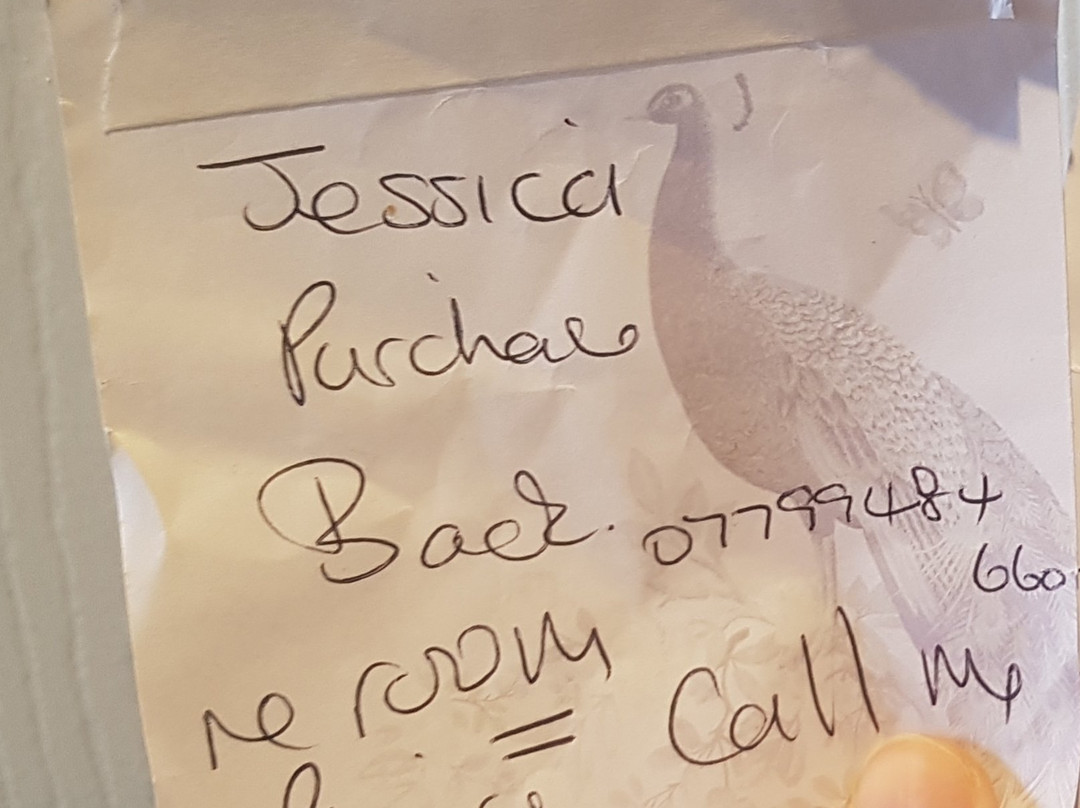 Jessica
Purchase
Back. 07799484
660
re room
= Call me